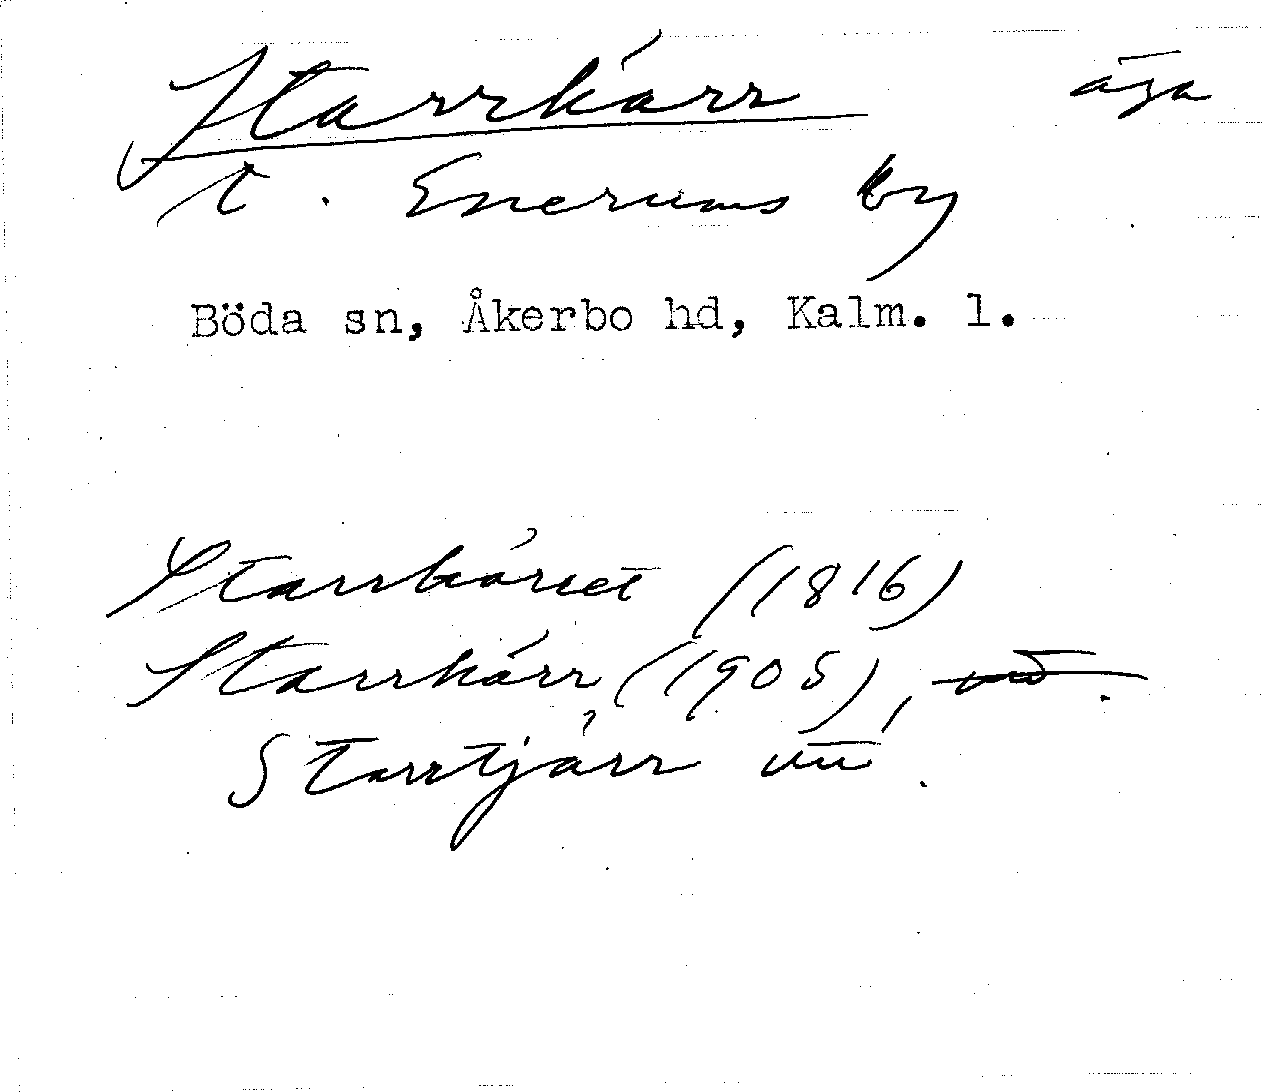 Starrkärr äga
t. Enerums by
Böda sn, Åkerbo hd, Kalm. l.
Starrkärret (1816)
Starrkärr (1905),
Starrtjärr utt.